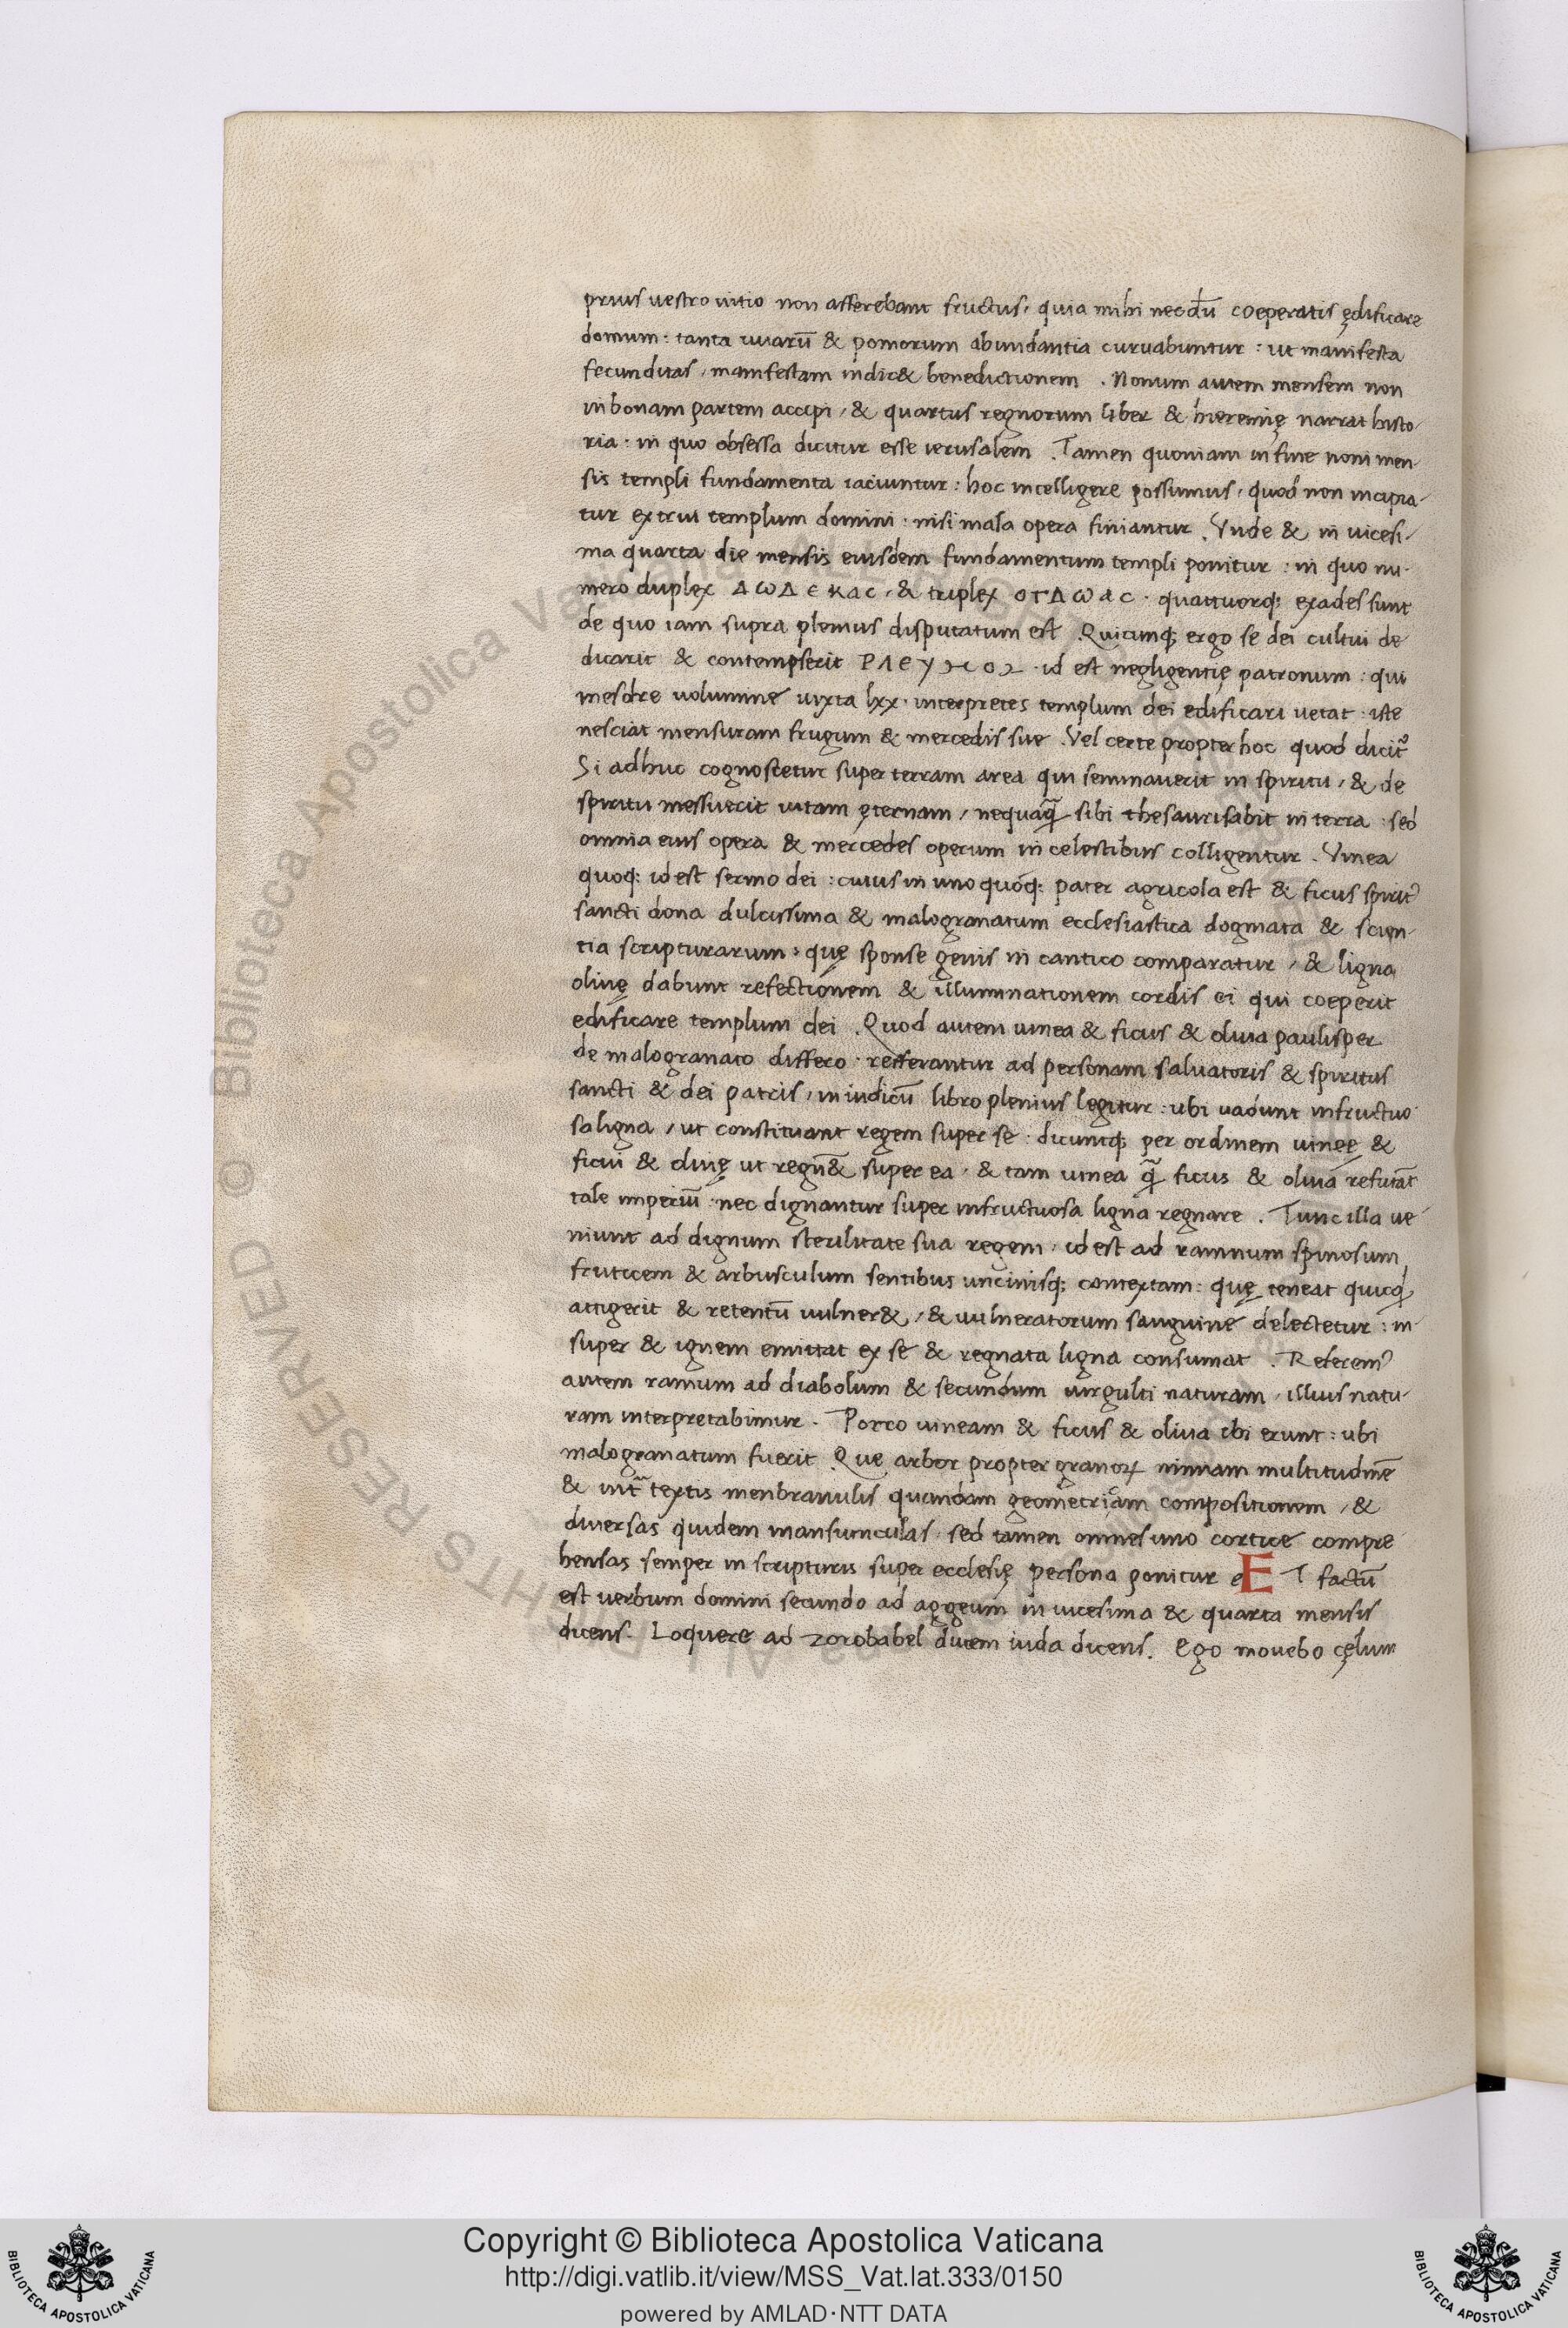 prius uestro uitio non afferebant fructus, quia mihi necdū coeperatis ędificare
domum: tanta uuarū & pomorum abundantia curuabuntur: ut manifesta
fecunditas, manifestam indic& benedictionem. Nonum autem mensem non
in bonam partem accipi, & quartus regnorum liber & hieremię narrat histo-
ria: in quo obsessa dicitur esse ierusalem. Tamen quoniam in fine noni men-
sis templi fundamenta iaciuntur: hoc intelligere possumus, quod non incipia-
tur extrui templum domini: nisi mala opera finiantur. Vnde & in uicesi-
ma quarta die mensis eiusdem fundamentum templi ponitur: in quo nu-
mero duplex ΔωΔεκας, & triplex ογΔωας. quattuorq; exades sunt
de quo iam supra plenius disputatum est. Quicunq; ergo se dei cultui de-
dicarit & contempserit id est negligentię patronum: qui
mesdre uolumine iuxta lxx. interpretes templum dei edificari uetat: iste
nesciat mensuram frugum & mercedis sue. Vel certe propter hoc quod dicit᷒
Si adhuc cognoscetur super terram area qui seminauerit in spiritu, & de
spiritu messuerit uitam ęternam, nequaq̃ sibi thesaurisabit in terra: sed
omnia eius opera & mercedes operum in celestibus colligentur. Vinea
quoq; id est sermo dei: cuius in uno quoq; pater agricola est & ficus spirit᷒
sancti dona dulcissima & malogranatum ecclesiastica dogmata & scien-
tia scripturarum: quę sponse genis in cantico comparatur, & ligna
oliuę dabunt refectionem & illuminationem cordis ei qui coeperit
edificare templum dei. Quod autem uinea & ficus & oliua paulisper
de malogranato differo. refferantur ad personam saluatoris & spiritus
sancti & dei patris, in iudicū libro plenius legitur: ubi uadunt infructuo-
sa ligna, ut constituant regem super se: dicuntq; per ordinem uineę &
ficui & oliuę ut regn& super ea, & tam uinea q̃ ficus & oliua refutāt
tale imperiū: nec dignantur super infructuosa ligna regnare. Tunc illa ue-
niunt ad dignum sterilitate sua regem, id est ad ramnum spinosum
fruticem & arbusculum sentibus uncinisq; contextam: quę teneat quicq̇d
attigerit & retentū uulner&, & uulneratorum sanguine delectetur: in-
super & ignem emittat ex se & regnata ligna consumat. Referem᷒
autem ramnum ad diabolum & secundum uirgulti naturam, illius natu-
ram interpretabimur. Porro uineam & ficus & oliua ibi erunt: ubi
malogranatum fuerit. Que arbor propter granoꝝ nimiam multitudinē
& int̃ textis menbranulis quandam geometricam compositionem, &
diuersas quidem mansiunculas, sed tamen omnes uno cortice compre-
hensas semper in scripturis super ecclesię persona ponitur ET factū
est uerbum domini secundo ad aggeum in uicesima & quarta mensis
dicens. Loquere ad zorobabel ducem iuda dicens. Ego mouebo cęlum
© Biblioteca Apostolica Vaticana ALL RIGHTS RESERVED
Copyright © Biblioteca Apostolica Vaticana
http://digi.vatlib.it/view/MSS_Vat.lat.333/0150
powered by AMLAD·NTT DATA
BIBLIOTECA APOSTOLICA VATICANA
BIBLIOTECA APOSTOLICA VATICANA